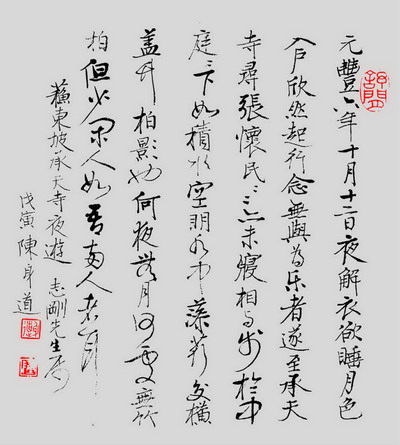 元豐六年十月十二夜解衣欲睡月色
入戶欣然起行念無與為乐者遂至承天
寺尋張懷民〻亦未寢相与步於中
庭〻下如積水空明水中藻荇交橫
蓋竹柏影也何夜無月何處無竹
柏但少閑人如吾兩人者耳
蘇東坡承天寺夜遊 志剛先生
戊寅 陳身道